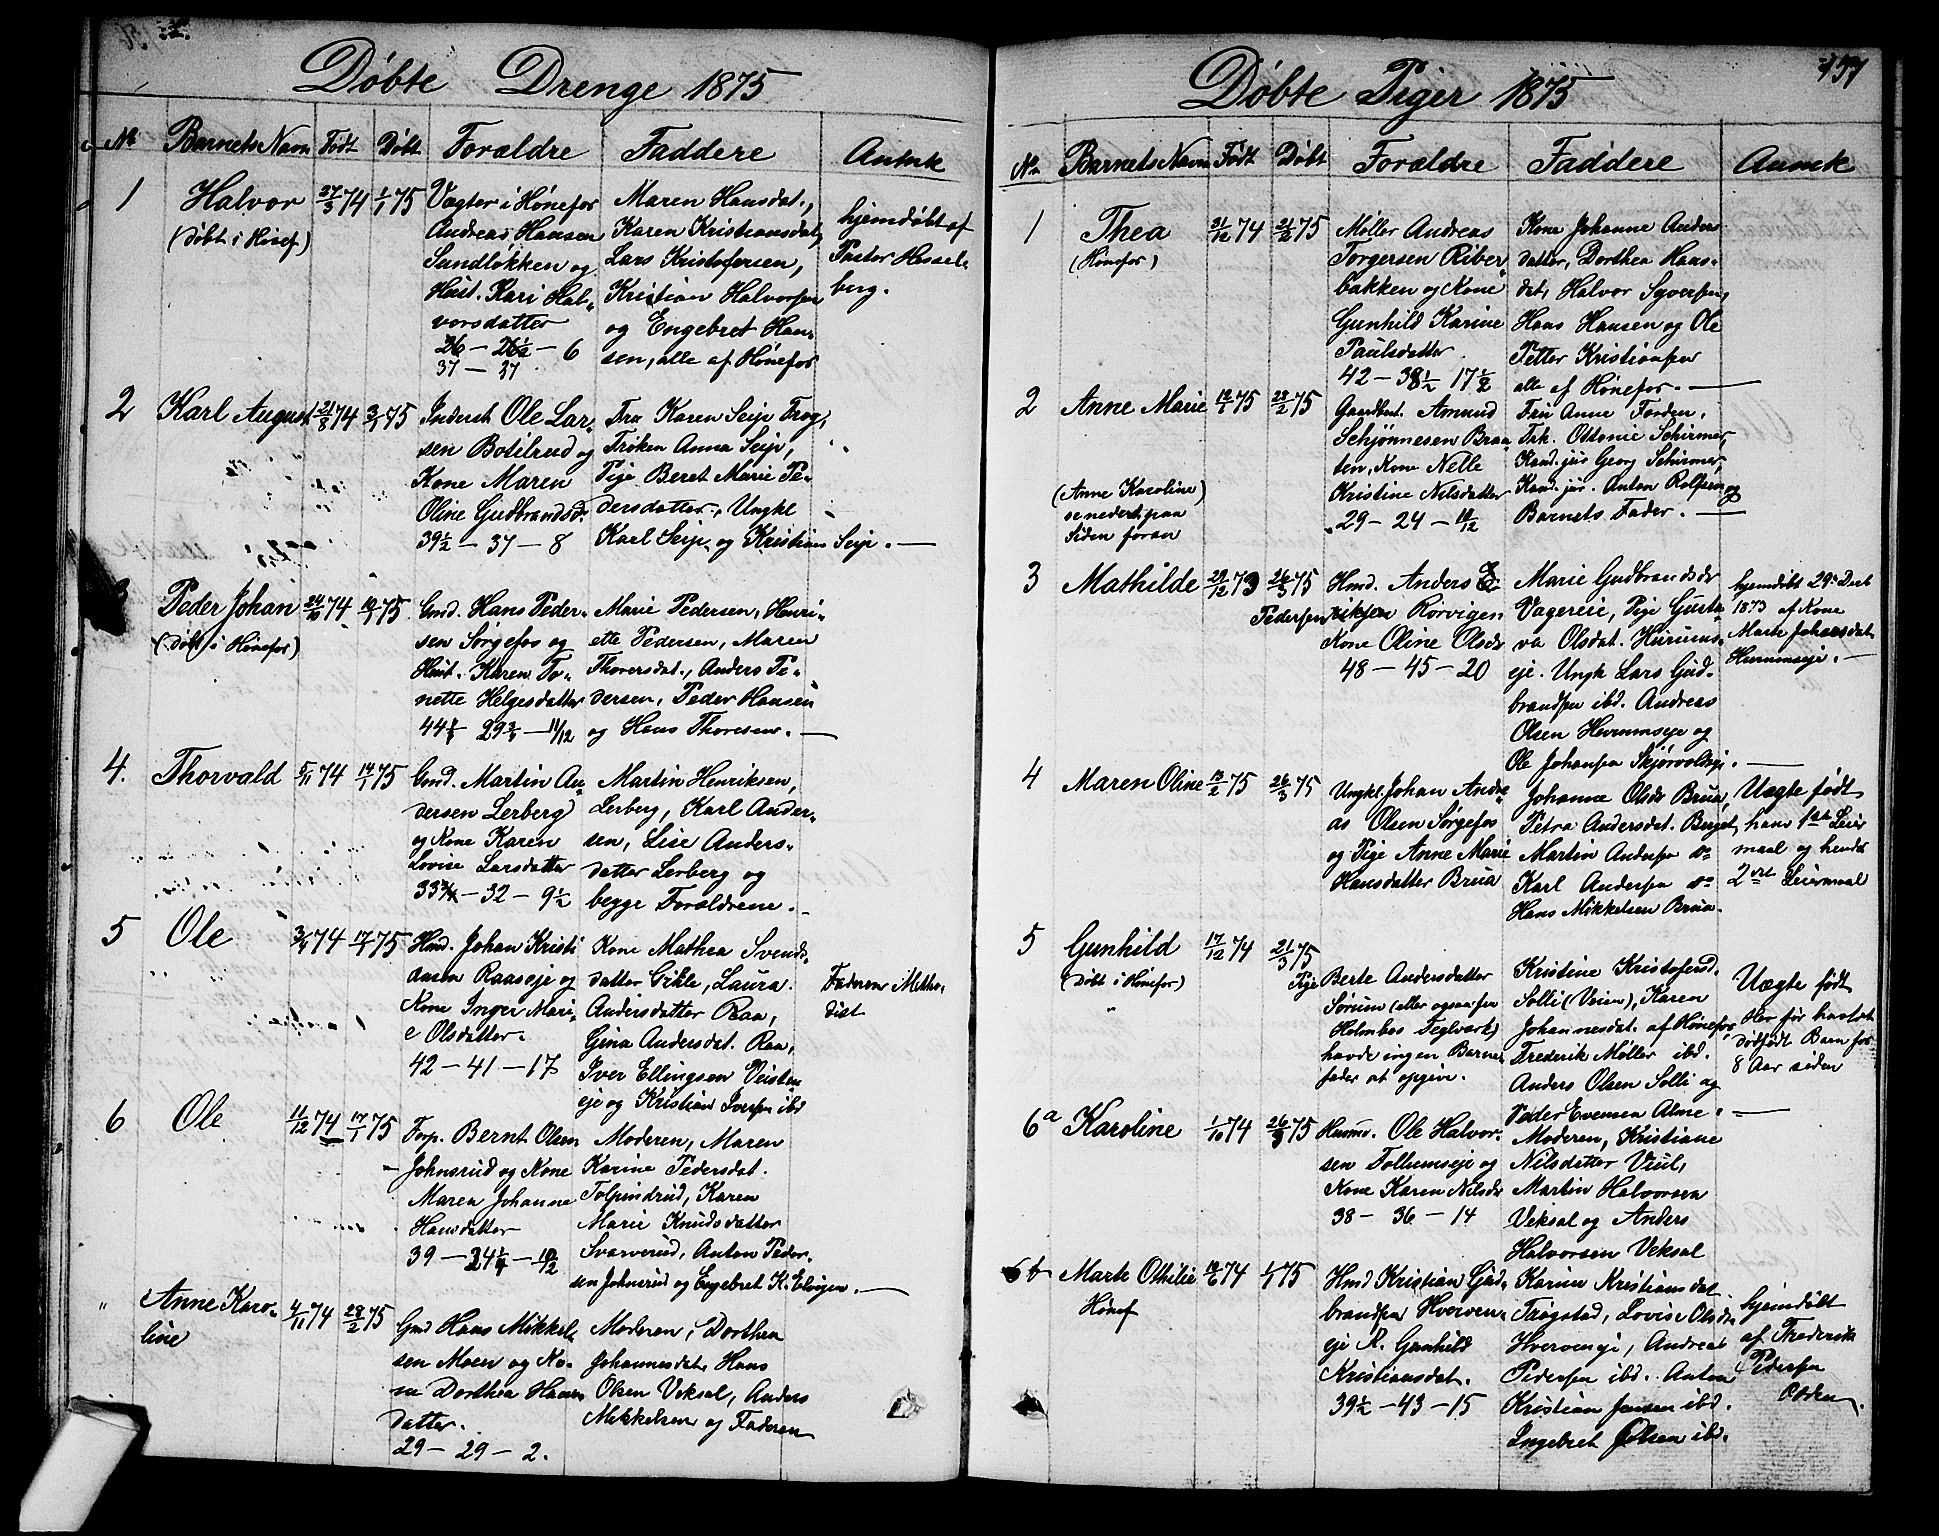 Døbte Drenge 1875
№ Barnets Navn Født Døbt Forældre Faddere Anmrk
1 Halvor 27/3 74 1/1 75
(døbt i Hønef)
Vægter i Hønefos
Andreas Hansen
Sundløkken og
Hust. Kari Hal-
vorsdatter
26 - 26½ - 6
37 - 37
Maren Hansdat.,
Karen Kristiansdat,
Lars Kristofersen,
Kristian Halvorsen
og Engebret Han-
sen, alle af Hønefos
hjemdøbt af
Pastor Hessel-
berg.
2 Karl August 21/8 74 3/1 75
Inderst Ole Lar-
sen Botilrud og
Kone Maren
Oline Gudbrandsd.
39½ - 37 - 8
Fru Karen Seip Frog,
Frøken Anna Seip,
Pige Beret Marie Pe-
dersdatter, Ungkl
Karl Seip og Kristian Seip. —
3 Peder Johan 24/10 74 10/1 75
(Døbt i Hønefos)
Gmd. Hans Peder-
sen Sørgefos og
Hust. Karen To-
nette Helgesdatter
44¼ - 29¾ - 11/12
Marie Pedersen, Henri-
ette Pedersen, Maren
Thoversdat., Anders Pe-
dersen, Peder Hansen
og Hans Thoresen. —
4. Thorvald 5/11 74 14/1 75
Gmd. Martin An-
dersen Lerberg
og Kone Karen
Lovise Larsdatter
33¾ - 32 - 9½
Martin Henriksen,
Lerberg, Karl Ander-
sen, Lise Anders-
datter Lerberg og
begge Forældrene. -
5 Ole 3/9 74 17/1 75
Hmd. Johan Kristi
ansen Raaseje og
Kone Inger Mari-
e Olsdatter.
42 - 41 - 17
Kone Mathea Svends-
datter Gikle, Laura
Andersdatter Raa,
Gina Andersdat. Raa,
Iver Ellingsen Veisten
eje og Kristian Iversen ibd
Faderen Metho-
dist
6 Ole 11/12 74 17/1 75
Forp. Bernt Olsen
Johnsrud og Kone
Maren Johanne
Hansdatter
39 - 24¼ - 10/12
Moderen, Maren
Karine Pedersdat.
Tolpindrud, Karen
Marie Knudsdatter
Svarverud, Anton Peder-
sen Johnsrud og Engebret K. Elvigen. —
" Anne Karo- 4/11 74 28/2 75
line
Gmd Hans Mikkel-
sen Moen og Ko-
ne Dorthea Hansen
datter.
29 - 29 - 2.
Moderen, Dorthea
Johannesdat, Hans
Olsen Veksal, Anders
Mikkelsen og Faderen
157
Døbte Piger 1875
№ Barnets Navn Født Døbt Forældre Faddere Anmrk
1 Thea 31/12 74 21/2 75
(Hønefos)
Møller Andreas
Torgersen Riber-
bakken og Kone
Gunhild Karine
Paulsdatter
42 - 38½ 17½
Kone Johanne Anders
datter, Dorthea Hans-
dat, Halvor Syversen,
Hans Hansen og Ole
Petter Kristiansen
alle af Hønefos. —
2 Anne Marie 12/1 75 28/2 75
(Anne Karoline)
se nederst paa
Siden foran
Gaardbrt. Amund
Schjønnesen Braa-
ten, Kone Nelle
Kristine Nilsdatter
29 - 24 - 10/12
Fru Anne Forden,
Frk. Ottonie Schirmer,
Kand. jur Georg Schirmer,
Kand. jur. Anton Rolfsen og
Barnets Fader. —
3 Mathilde 29/12 73 26/3 75
Hmd. Anders
Pedersen Rorvigen
Kone Oline Olsdr
48 - 45 - 20
Marie Gudbrandsdr
Vagereie, Pige Gusta-
va Olsdat. Hurums-
eje. Ungk Lars Gud-
brandsen ibd. Andreas
Olsen Hurumseje og
Ole Johansen Skjørvoldeje. —
hjemdøbt 29. Decb
1873 af Kone
Marte Johansdat,
Hurumseje. —
4 Maren Oline 13/2 75 26/3 75
Ungkl. Johan Andre-
as Olsen Sørgefos
og Pige Anne Marie
Hansdatter Brua
Johanne Olsdr Brua,
Petra Andersdat. Berget,
Martin Andersen do
Karl Andersen do
Hans Mikkelsen Brua.
Uægte født
hans 1ste Leier
maal og hendes
2det Leiermaal
5 Gunhild 17/12 74 21/3 75
(Døbt i Hønefos)
Pige Berte Andersdatter
Sørum (eller ogsaa fra
Holmbos Teglverk)
havde ingen Barne
fader at opgive.
Kristine Kristofersd.
Solli (Veien), Karen
Johannesdat. af Hønefos,
Frederik Møller ibd.
Anders Olsen Solli og
Peder Evensen Alme. —
Uægte født
Her før havt et
dødfødt Barn for
8 Aar siden
6a Karoline 1/10 74 26/3 75
Husmd. Ole Halvor-
sen Follumseje og
Kone Karen Nilsdr
38 - 36 - 14
Moderen, Kristiane
Nilsdatter Viul,
Martin Halvorsen
Veksal og Anders
Halvorsen Veksal
6b Marte Othilie 10/6 74 1/1 75
Hønef
Hmd Kristian Gud-
brandsen Hverven-
eje K. Gunhild
Kristiansdat.
39½ - 43 - 15
Karine Kristiansdat
Trøgstad, Lovise Olsdr
Hverveneje, Andreas
Pedersen ibd. Anton
Kristian Jensen ibd.
Ingebret Olsen ibd.
hjemdøbt
af Frederik
Pedersen